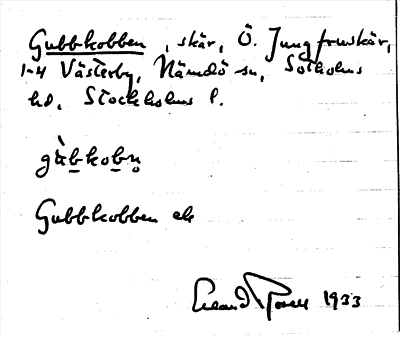 Gubbkobben, skär, Ö. Jungfruskär,
1-4 Västerby, Nämdö sn, Sotholms
hd, Stockholms l.
gùbkobn̥
Gubbkobben ek
1933